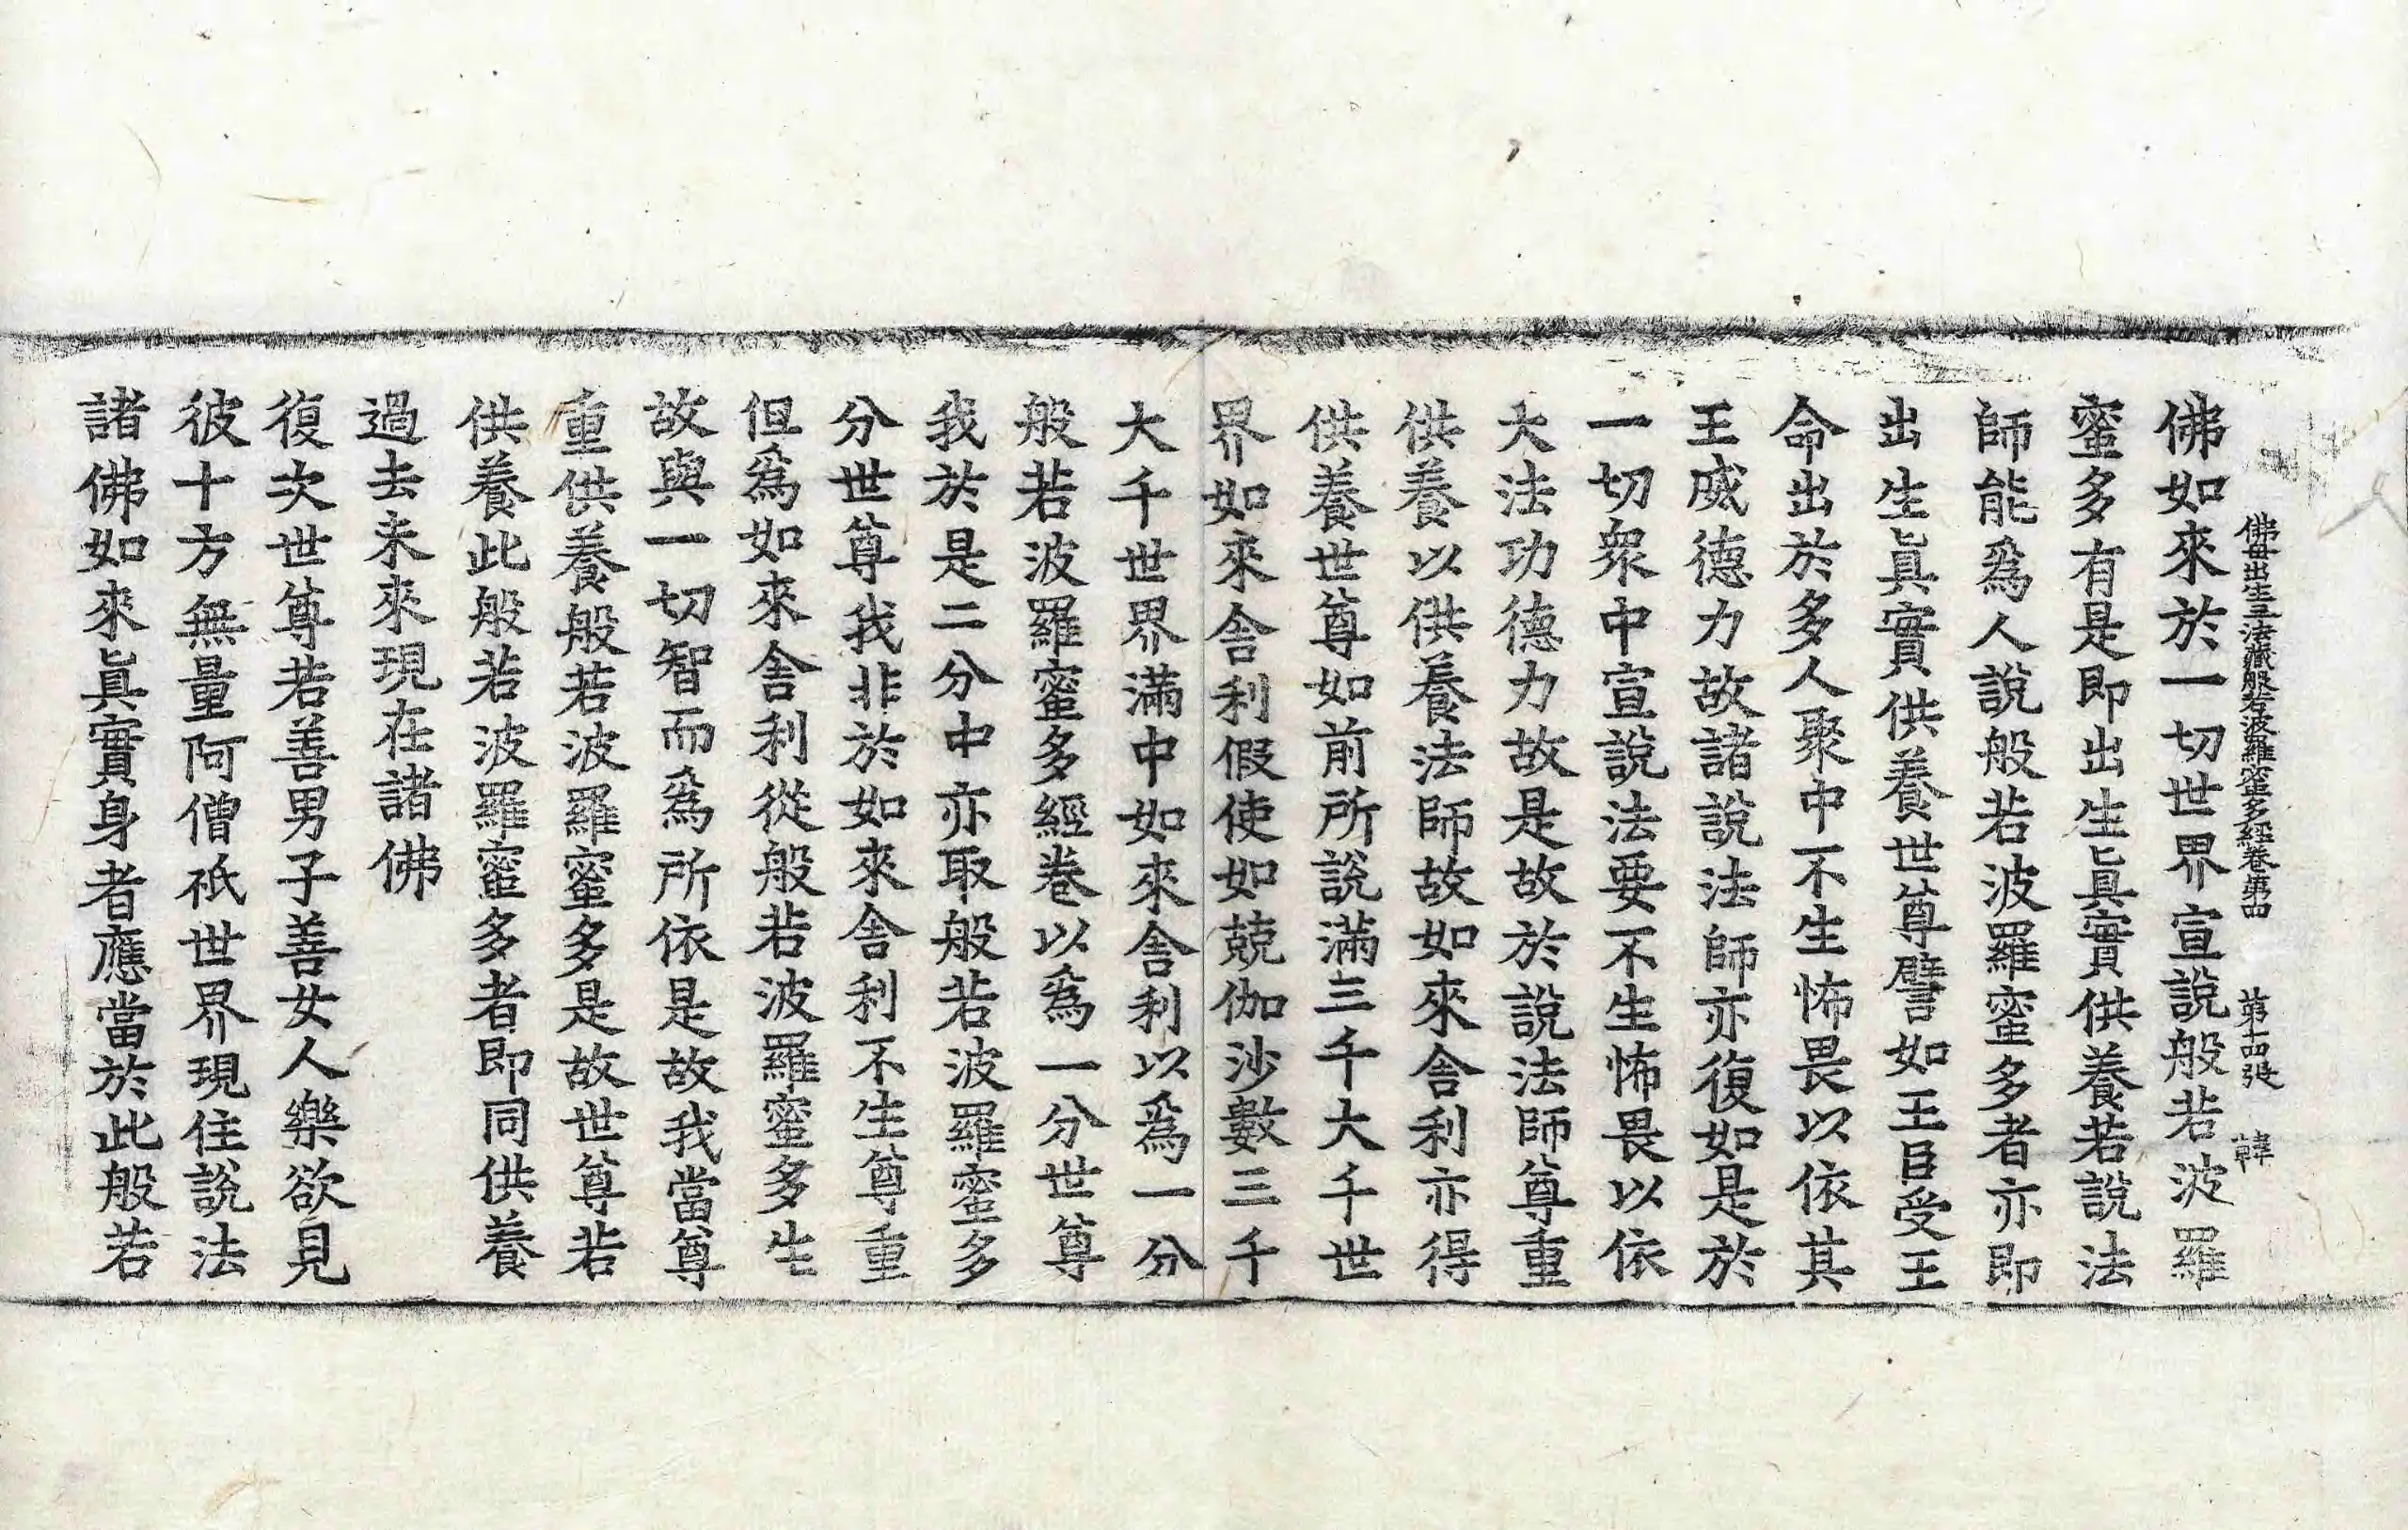 佛母出生三法藏般若波羅蜜多經卷第四　第十四張　韓
佛如來於一切世界宣說般若波羅
蜜多有是即出生眞實供養若說法
師能爲人說般若波羅蜜多者亦即
出生眞實供養世尊譬如王臣受王
命出於多人聚中不生怖畏以依其
王威德力故諸說法師亦復如是於
一切衆中宣說法要不生怖畏以依
大法功德力故是故於說法師尊重
供養以供養法師故如來舍利亦得
供養世尊如前所說滿三千大千世
界如來舍利假使如兢伽沙數三千
大千世界滿中如來舍利以爲一分
般若波羅蜜多經卷以爲一分世尊
我於是二分中亦取般若波羅蜜多
分世尊我非於如來舍利不生尊重
但爲如來舍利從般若波羅蜜多生
故與一切智而爲所依是故我當尊
重供養般若波羅蜜多是故世尊若
供養此般若波羅蜜多者即同供養
過去未來現在諸佛
復次世尊若善男子善女人樂欲見
彼十方無量阿僧祇世界現住說法
諸佛如來眞實身者應當於此般若